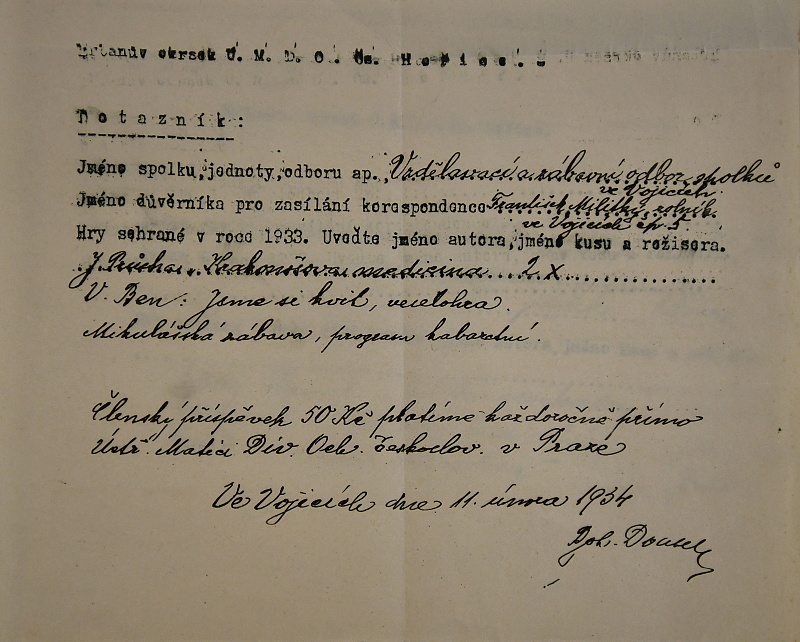 okrsek Ú. M. D. O. Čs.
Dotazník:
Jméno spolku, jednoty, odboru ap. Vzdělavací a zábavní odbor spolků
ve Vojicích
Jméno důvěrníka pro zasílání korespondence František Militký, rolník
ve Vojicích čp 5
Hry sehrané v roce 1933. Uveďte jméno autora, jméno kusu a režisera.
J. Průcha: Krakonošova medicina 2 x
V. Ben: Jsme si kvit, veselohra.
Mikulášská zábava, program kabaretní.
Členský příspěvek 50 Kč platíme každoročně přímo
Ústř. Matici Div. Och. Českoslov. v Praze
Ve Vojicích dne 11. února 1934